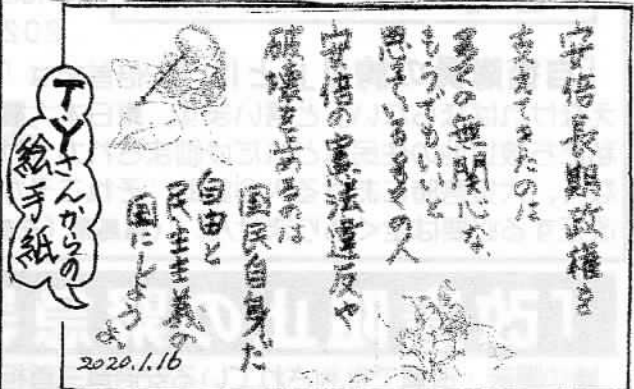 安倍長期政権を
支えてきたのは
多くの無関心な
もうでもいいと
思っている多くの人
安倍の憲法違反や
破壊を止めるのは
国民自身だ
自由と
民主主義の
国にしようよ
2020.1.16
T.Yさんからの
絵手紙